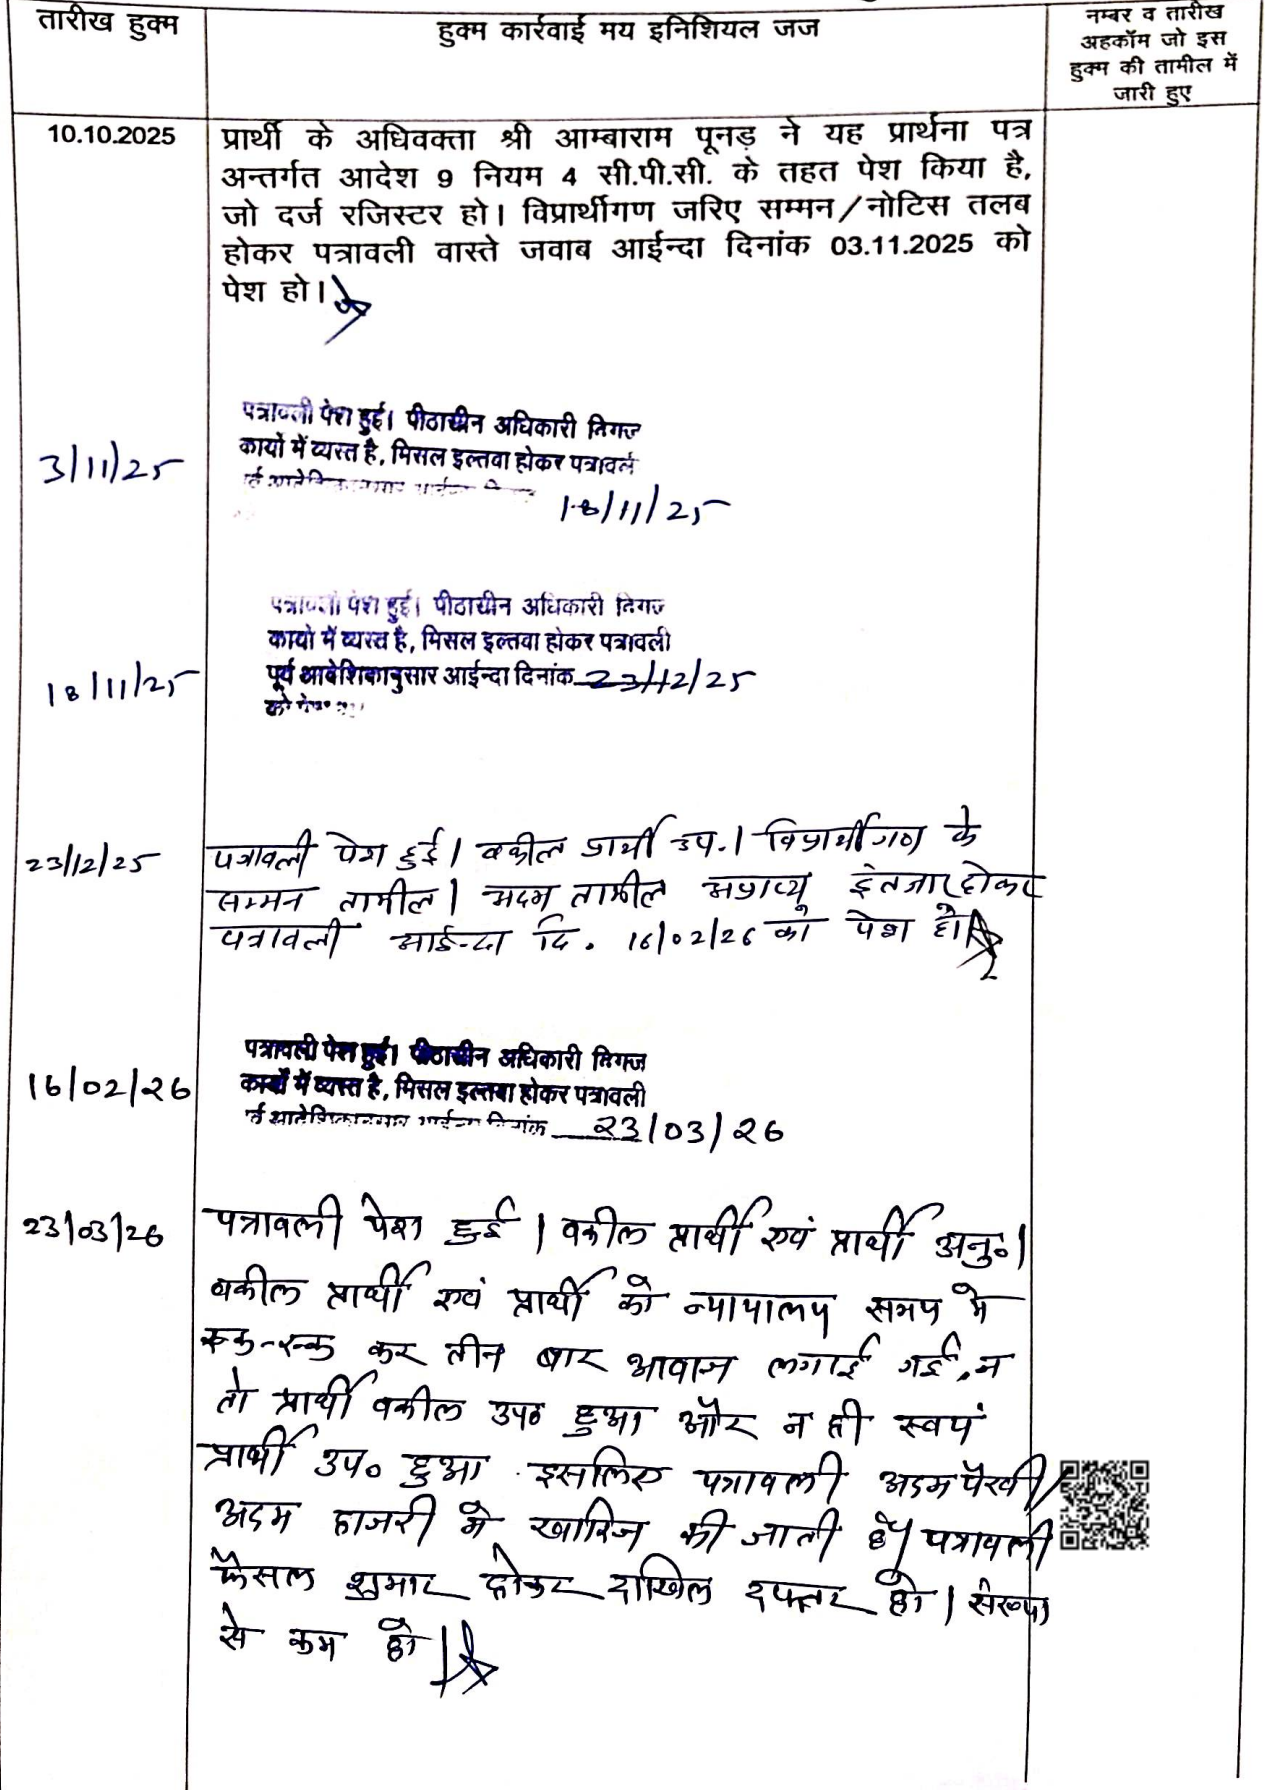 तारीख हुक्म
हुक्म कार्रवाई मय इनिशियल जज
नम्बर व तारीख
अहकॉम जो इस
हुक्म की तामील में
जारी हुए
10.10.2025
प्रार्थी के अधिवक्ता श्री आम्बाराम पूनड़ ने यह प्रार्थना पत्र
अन्तर्गत आदेश 9 नियम 4 सी.पी.सी. के तहत पेश किया है,
जो दर्ज रजिस्टर हो। विप्रार्थीगण जरिए सम्मन/नोटिस तलब
होकर पत्रावली वास्ते जवाब आईन्दा दिनांक 03.11.2025 को
पेश हो।
3/11/25
पत्रावली पेश हुई। पीठासीन अधिकारी
कार्यो में व्यस्त है, मिसल इल्तवा होकर
18/11/25
18/11/25
पत्रावली पेश हुई। पीठासीन अधिकारी
कार्यो में व्यस्त है, मिसल इल्तवा होकर पत्रावली
पूर्व आदेशिकानुसार आईन्दा दिनांक 23/12/25
23/12/25
पत्रावली पेश हुई। वकील प्रार्थी उप.। विप्रार्थीगण के
सम्मन तामील। अदम तामील इंतजार होकर
पत्रावली आईन्दा दि. 16/02/26 को पेश हो।
16/02/26
पत्रावली पेश हुई। पीठासीन अधिकारी
कार्यो में व्यस्त है, मिसल इल्तवा होकर पत्रावली
23/03/26
23/03/26
पत्रावली पेश हुई। वकील प्रार्थी एवं प्रार्थी अनु०।
वकील प्रार्थी एवं प्रार्थी को न्यायालय समय मे
रूक-रूक कर तीन बार आवाज लगाई गई, न
तो प्रार्थी वकील उप० हुआ और न ही स्वयं
प्रार्थी उप० हुआ इसलिए पत्रावली अदम पैरवी/
अदम हाजरी मे खारिज की जाती है। पत्रावली
फैसल शुमार होकर दाखिल दफ्तर हो। संख्या
से कम हो।